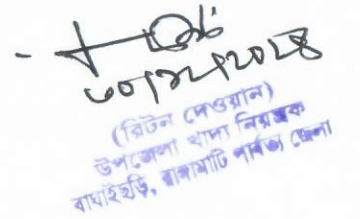 ৩০/১২/২০২৪
(রিটন দেওয়ান)
উপজেলা খাদ্য নিয়ন্ত্রক
বাঘাইছড়ি, রাঙ্গামাটি পার্বত্য জেলা